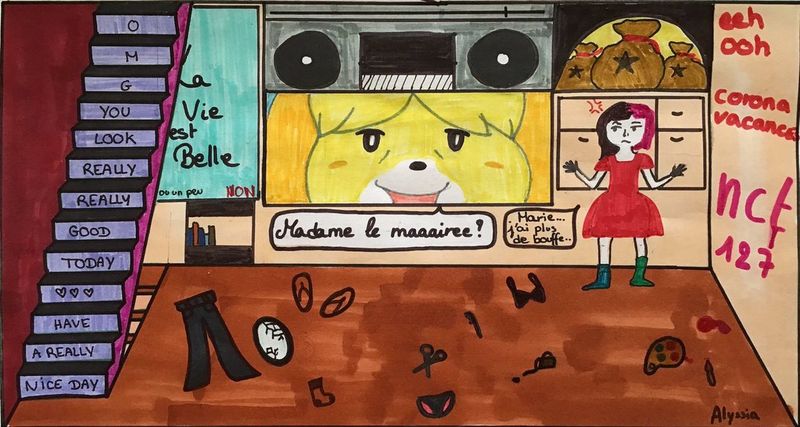 O
M
G
YOU
LOOK
REALLY
REALLY
GOOD
TODAY
♡♡♡
HAVE
A REALLY
NICE DAY
La
Vie
est
Belle
ou un peu NON
Madame le maaairee?
Marie...
j'ai plus
de bouffe..
eeh
ooh
corona
vacances
ncf
127
Alyssia